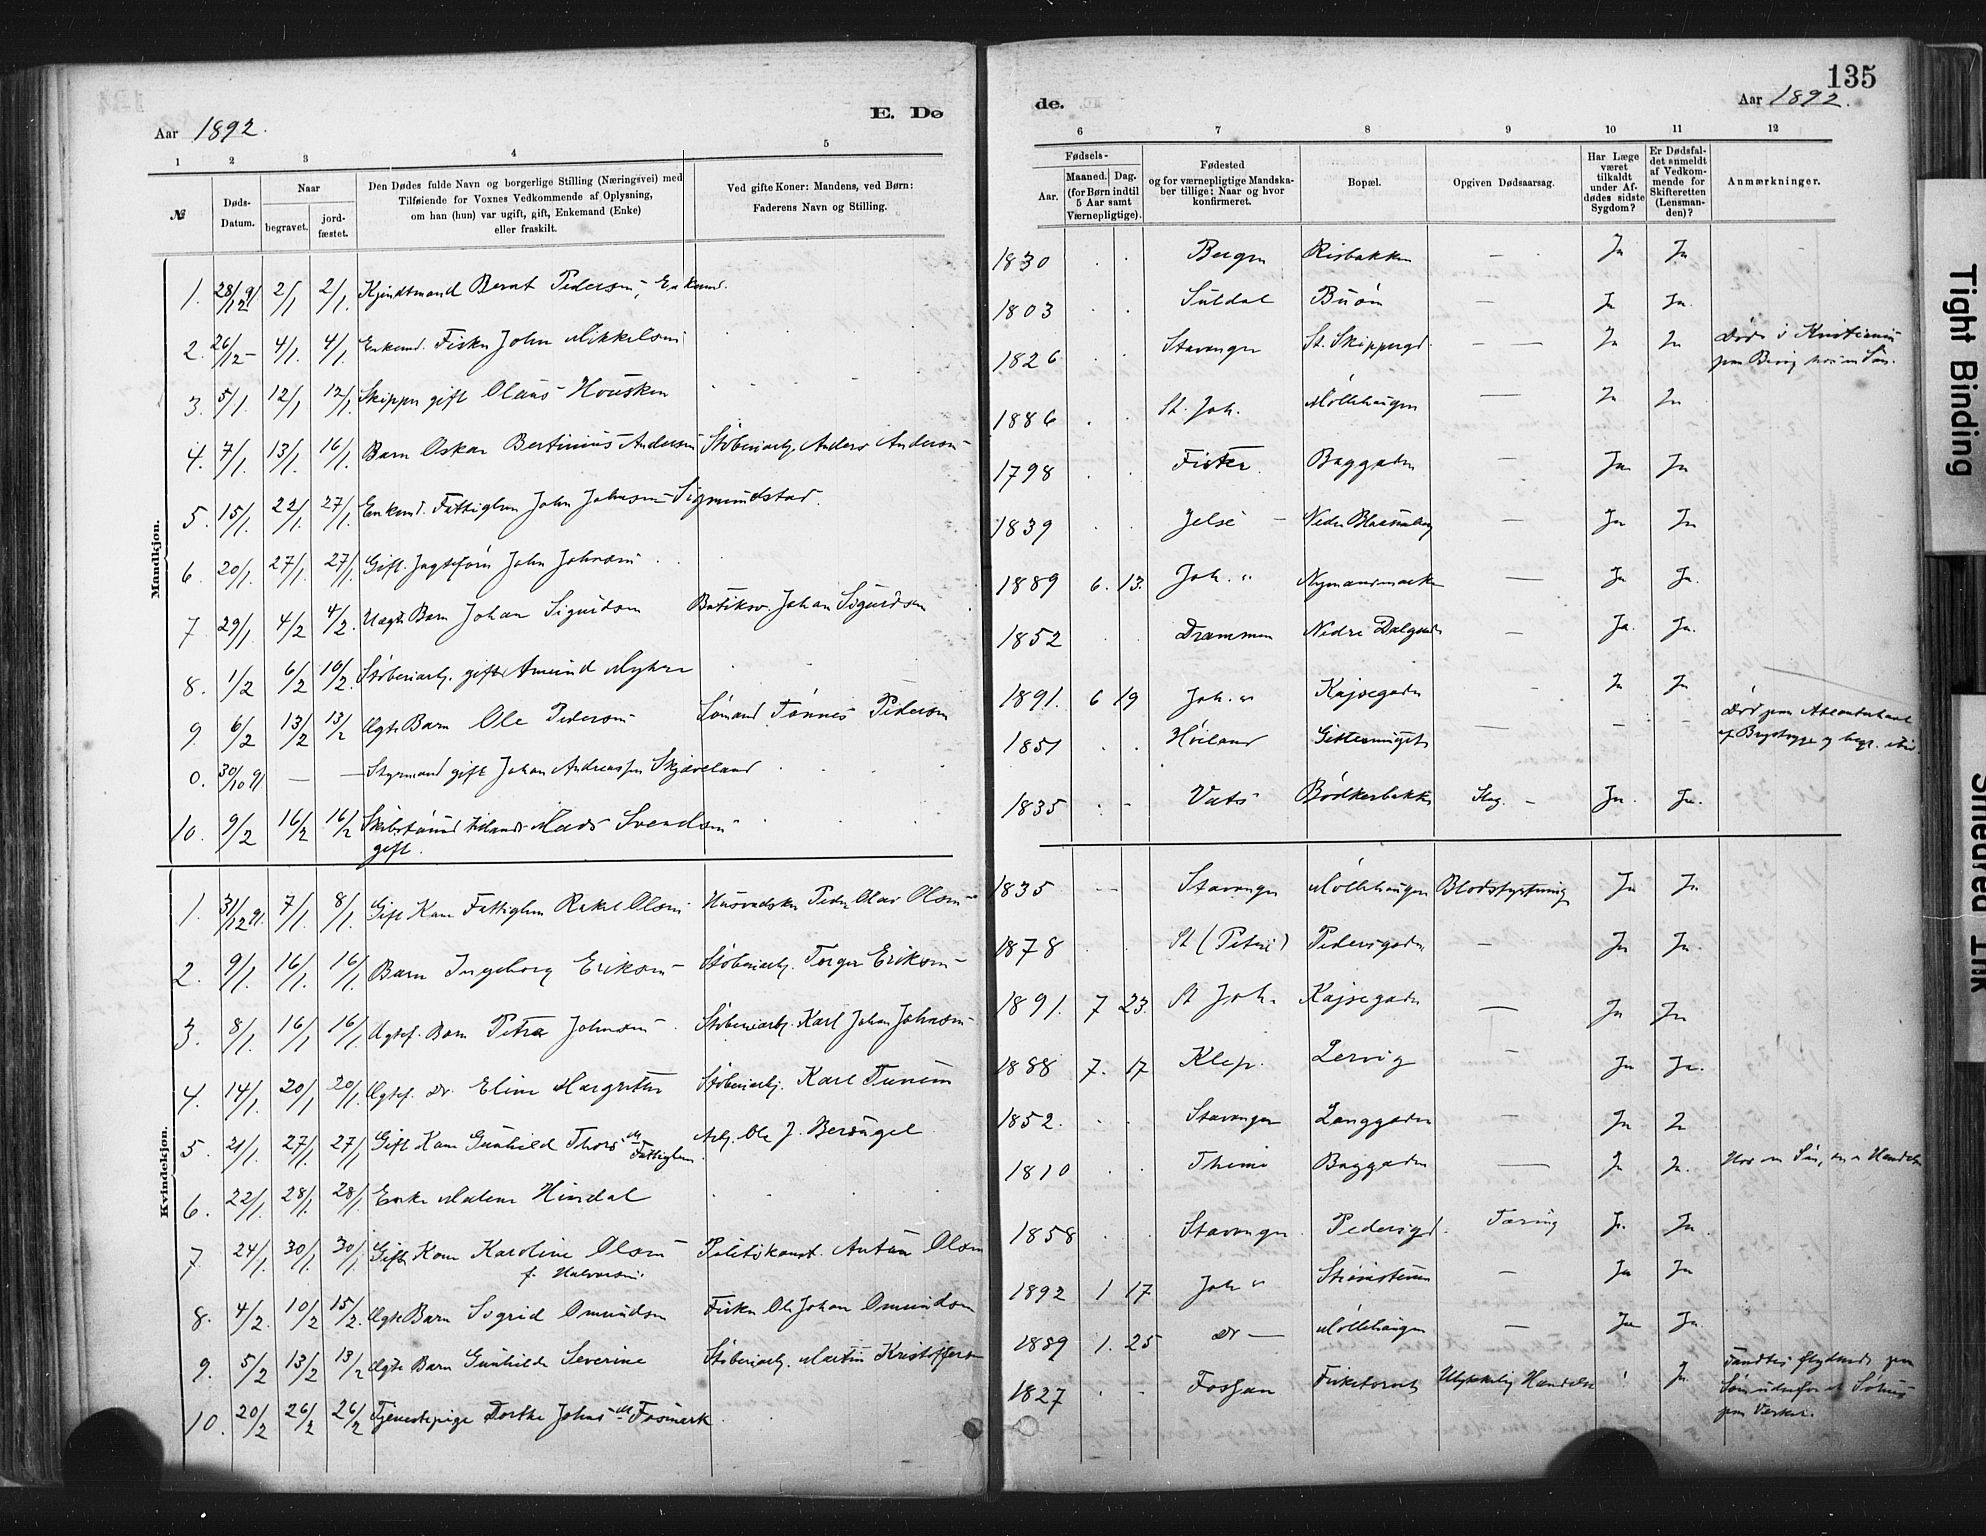 135
Aar 1892.
E. Dø
de.
Aar 1892.
1 2 3 4 5
6 7 8 9 10 11 12
№
Døds-
Datum.
Naar
begravet.
jord-
fæstet.
Den Dødes fulde Navn og borgerlige Stilling (Næringsvei) med
Tilføiende for Voxnes Vedkommende af Oplysning,
om han (hun) var ugift, gift, Enkemand (Enke)
eller fraskilt.
Ved gifte Koner: Mandens, ved Børn:
Faderens Navn og Stilling.
Fødsels-
Aar.
Maaned. Dag.
(for Børn indtil
5 Aar samt
Værnepligtige).
Fødested
og for værnepligtige Mandska-
ber tillige: Naar og hvor
konfirmeret.
Bopæl.
Opgiven Dødsaarsag.
Har Læge
været
tilkaldt
under Af-
dødes sidste
Sygdom?
Er Dødsfal-
det anmeldt
af Vedkom-
mende for
Skifteretten
(Lensman-
den)?
Anmærkninger.
Mandkjøn.
1. 28/12 91 2/1 2/1. Kjendtmand Bernt Pedersen, Enkemd. 1830 Bergen Risbakken — Ja Ja
2. 26/12 – 4/1. 4/1. Enkemd. Fisker John Mikkelsen 1803 Suldal Buøen — Ja Ja.
3. 5/1. 12/1 12/1. Skipper gift Olaus Housken 1826 Stavanger St. Skippergd. — Ja Ja Døde i Kristiania
4. 7/1. 13/1. 16/1. Barn Oskar Bertinius Andersen Støberiarb. Anders Andersen 1886 St. Joh. Møllehaugen — Ja Ja
5. 15/1. 22/1. 27/1. Enkemd. Fattiglem John Johnsen Sigmundstad. 1798 Fister. Baggaden — Ja Ja
6. 20/1. 27/1. 27/1. Gift. Jagtefører John Johnsen 1839 Jelse Nedre Blaasenberg — Ja Ja
7. 29/1. 4/2 4/2. Uægte Barn Johan Sigurdsen Butiksv. Johan Sigurdsen 1889 6. 13. Joh. " Nymansmarken — Ja Ja.
8. 1/2 6/2 10/2. Støberiarb. gift Amund Myhre 1852 Drammen Nedre Dalgaden — Ja. Ja.
9. 6/2 13/2 13/2 Ægte Barn Ole Pedersen Sømand Tønnes Pedersen 1891. 6 19 Joh. " Kajsegaden — Ja Ja
0. 30/10 91 — — Styrmand gift Johan Andreassen Skjæveland 1851 Høiland — — —
10. 9/2 16/2 16/2 Mads Svendsen 1835 Vats Bødkerbakken Slag. – Ja. Ja.
gift.
Kvindekjøn.
1. 31/12 91. 7/1. 8/1. Gift Kone Fattiglem Rakel Olsen Peder Olav Olsen 1835 — Stavanger Møllehaugen Blodstyrtning Ja Ja
2. 9/1. 16/1. 16/1. Barn Ingeborg Eriksen Støberiarb. Torger Eriksen 1878 St (Petri) Pedersgaden — Ja Ja.
3. 8/1. 16/1 16/1. Ægtef. Barn Petra Johnsen Støberiarb. Karl Johan Johnsen 1891. 7 23. St Joh. Kajsegaden — Ja Ja
4. 14/1. 20/1 20/1. Ægtef. do Eline Margrethe Støberiarb. Karl Tunem 1888 7. 17 Klep. Lervig — Ja Ja.
5. 21/1. 27/1. 27/1. Gift Kone Gunhild Thorsdtr Fattiglem. Arb. Ole J. Bersagel 1852. Stavanger Langgaden Ja Ja
6. 22/1. 28/1. 28/1. Enke Malene Hindal 1810 Thime Baggaden — Ja Ja.
7. 24/1. 30/1. 30/1. Gift Kone Karoline Olsen Politikonst. Anton Olsen 1858 Stavanger Pedersgd. Tæring Ja. Ja
f. Halvorsen.
8. 4/2. 10/2 15/2. Ægte Barn Sigrid Omundsen Fisker Ole Johan Omundsen 1892 1 17 Joh " — Ja Ja
9. 5/2 13/2 13/2 Ægte Barn Gunhilde Severine Støberiarb. Martin Kristoffersen 1889 1. 25 do — Møllehaugen — Ja Ja.
10. 20/2 26/2 26/2 Tjenestepige Dorthe Johnsdtr Fosmark 1827 Fossan Fisketorvet Ulykkelig Hændelse Ja
Tight Binding